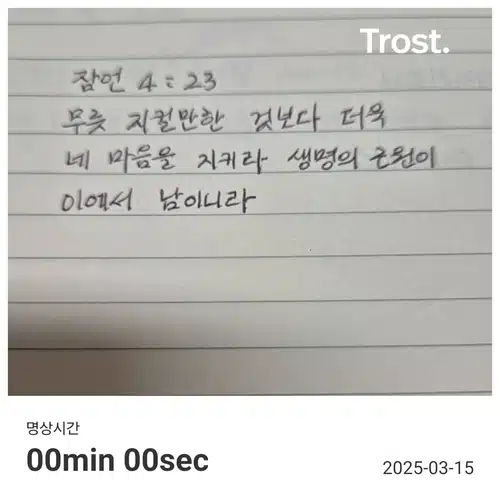 Trost.
잠언 4:23
무릇 지킬만한 것보다 더욱
네 마음을 지키라 생명의 근원이
이에서 남이니라
명상시간
00min 00sec
2025-03-15